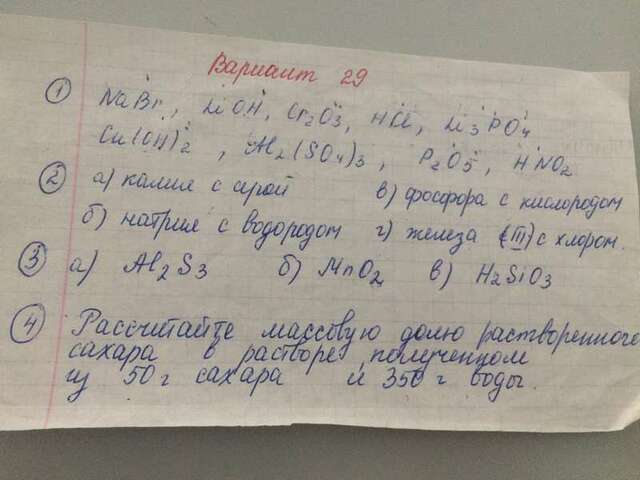 Вариант 29
① NaBr, LiOH, Cr₂O₃, HCl, Li₃PO₄
Cu(OH)₂, Al₂(SO₄)₃, P₂O₅, HNO₂
② а) калия с серой в) фосфора с кислородом
б) натрия с водородом г) железа (III) с хлором.
③ а) Al₂S₃ б) MnO₂ в) H₂SiO₃
④ Рассчитайте массовую долю растворенного
сахара в растворе, полученном
из 50 г сахара и 350 г воды.